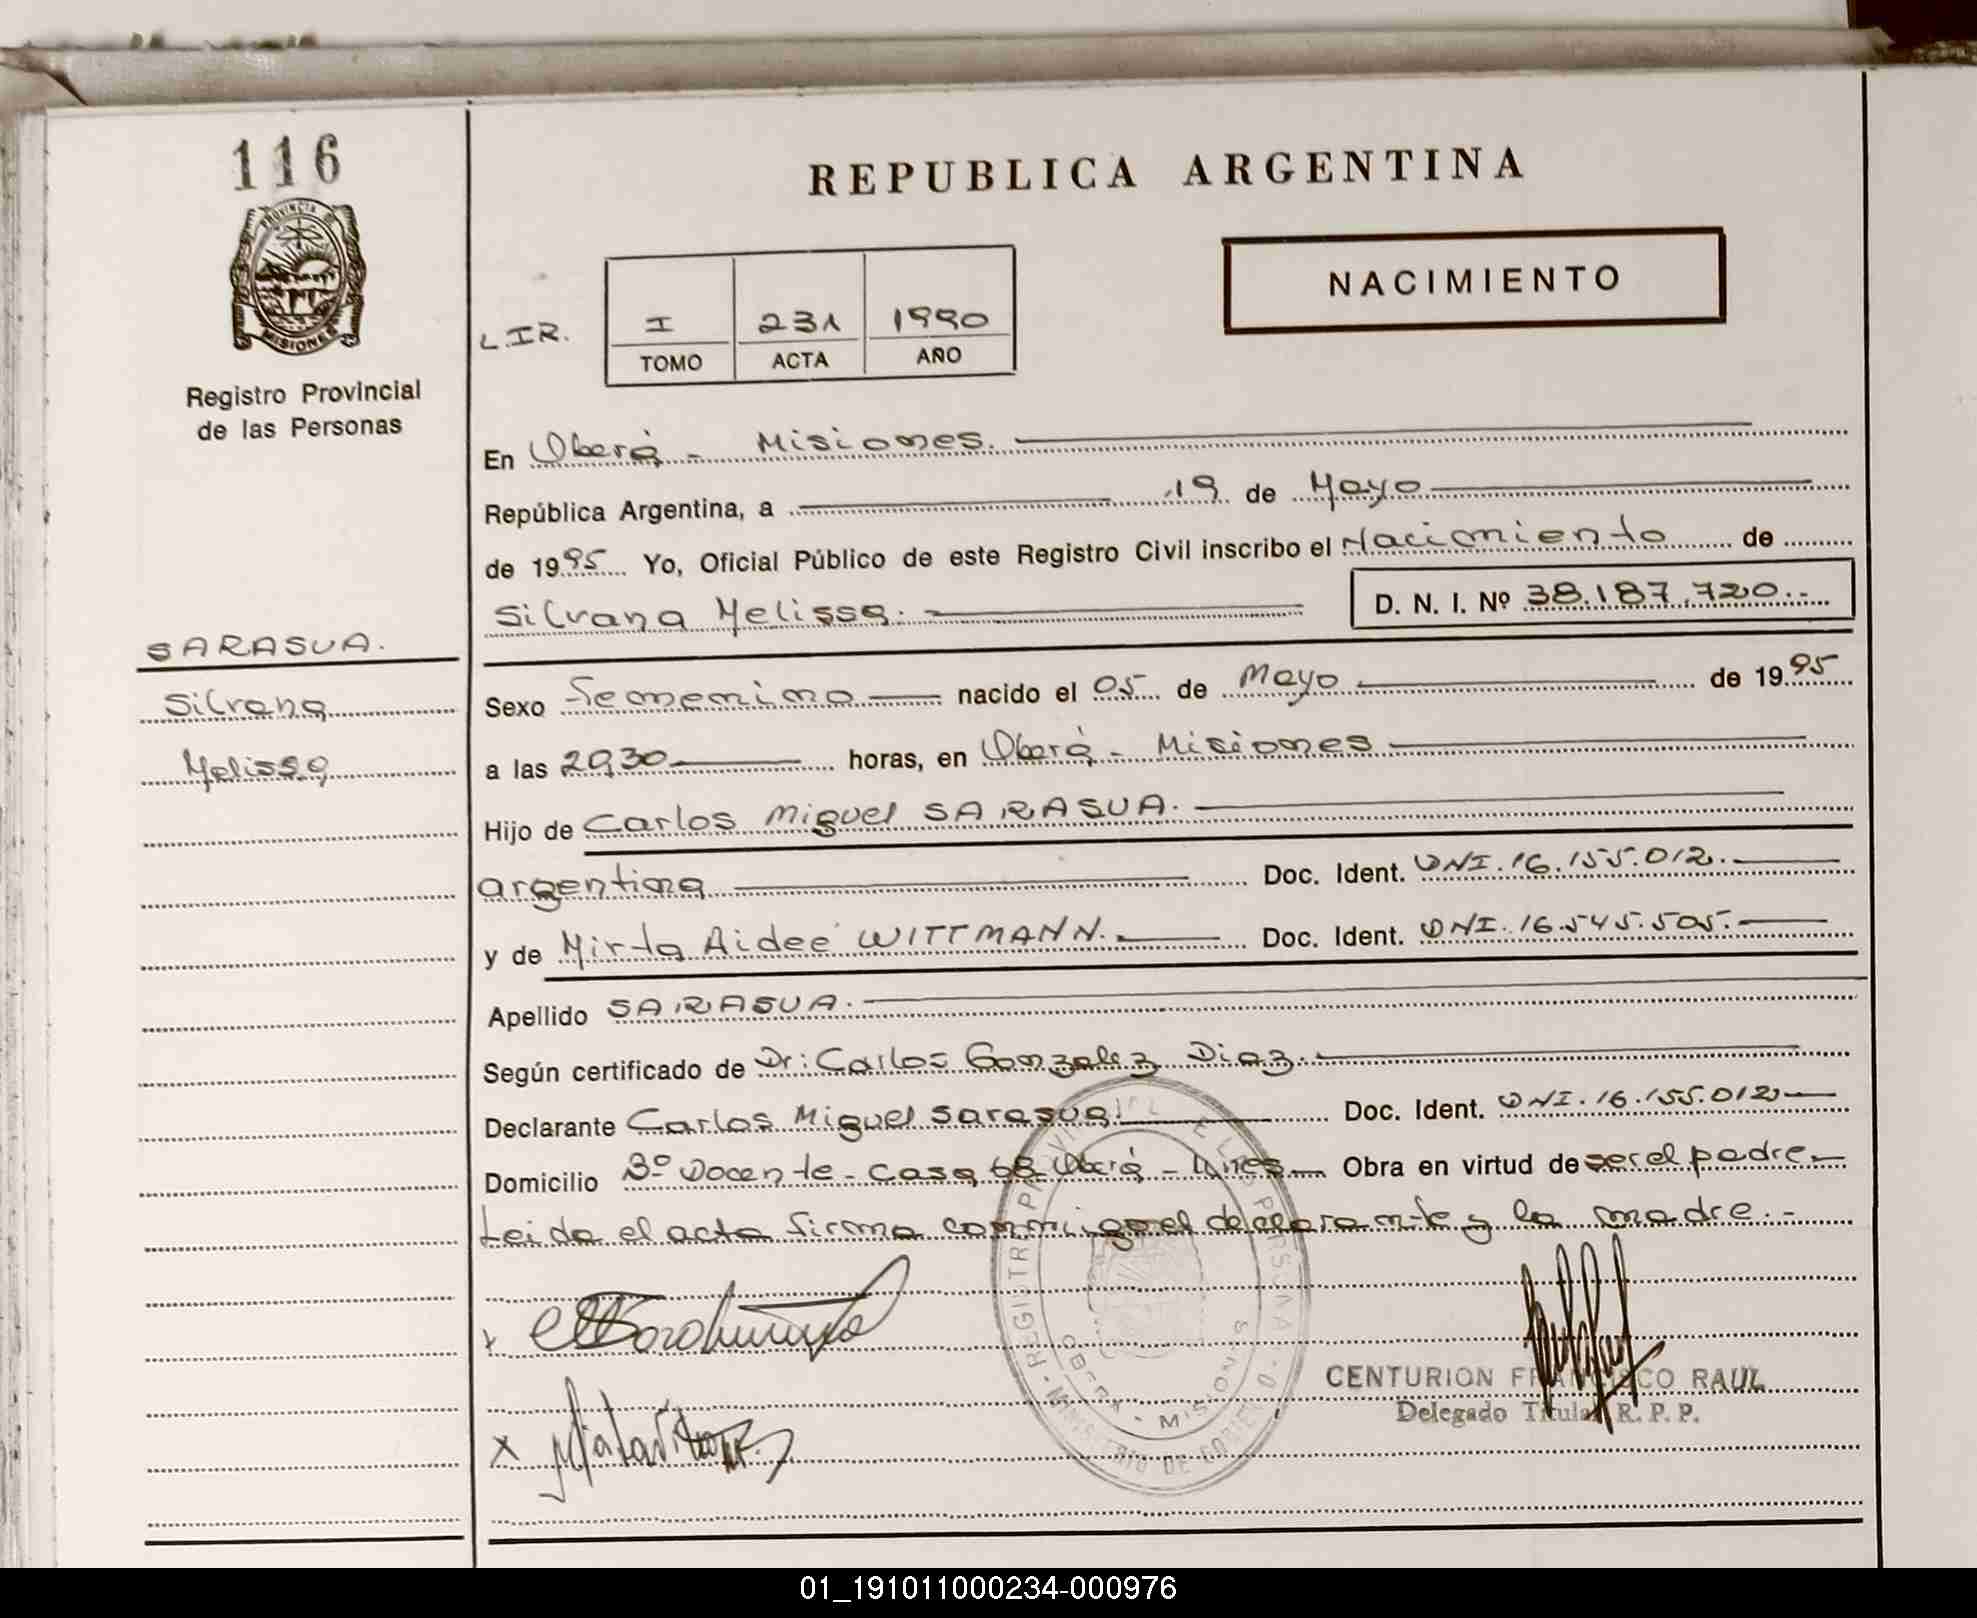 116
PROVINCIA DE
MISIONES
Registro Provincial
de las Personas
REPUBLICA ARGENTINA
NACIMIENTO
L.IR.
I 231 1990
TOMO ACTA AÑO
En Oberá - Misiones.
República Argentina, a 19 de Mayo
de 1995 Yo, Oficial Público de este Registro Civil inscribo el Nacimiento de
Silvana Melissa. D. N. I. Nº 38.187.720.-
SARASUA.
Silvana
Melissa
Sexo Femenino nacido el 05 de Mayo de 1995
a las 20,30 horas, en Oberá - Misiones
Hijo de Carlos Miguel SARASUA.
argentina Doc. Ident. DNI. 16.155.012.
y de Mirta Aideé WITTMANN. Doc. Ident. DNI. 16.545.505.
Apellido SARASUA.
Según certificado de Dr: Carlos Gonzalez Diaz.
Declarante Carlos Miguel Sarasua. Doc. Ident. DNI. 16.155.012
Domicilio Bº Docente - Casa 68 Oberá - Mnes. Obra en virtud de ser el padre.
Leida el acta firma conmigo el declarante y la madre.-
x
x
REGISTRO PROVINCIAL DE LAS PERSONAS
MINISTERIO DE GOBIERNO
OBERA - MISIONES
CENTURION FRANCISCO RAUL
Delegado Titular R. P. P.
01_191011000234-000976